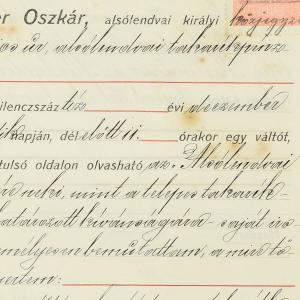 er Oszkár, alsólendvai királyi közjegyz
úr, alsólendvai takarékpénz
ilenczszáz tiz évi deczember
napján, dél előtt 11. órakor egy váltót,
tulsó oldalon olvasható az Alsólendvai
neki, mint a telepes takarék-
határozott kívánságára saját ir
emélyesen bemutattam, a mire tő
ertem: